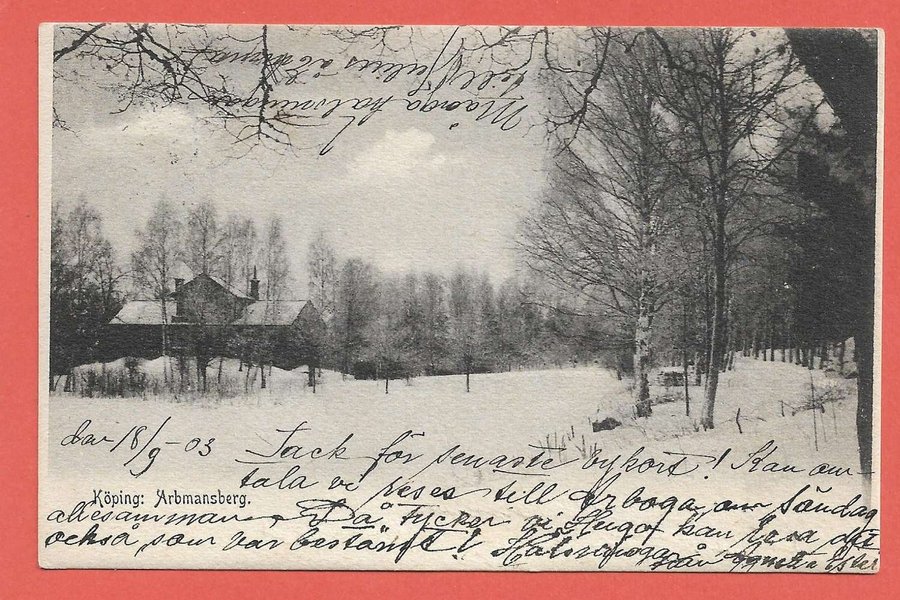 Många hälsningar
till Julius
den 18/9-03 Tack för senaste vykort! Kan om-
tala vi reses till Arboga om Söndag
allesamman. Då tycker vi Helga kan
också som var bestämt! Hälsningar
från Ester
Köping: Arbmansberg.